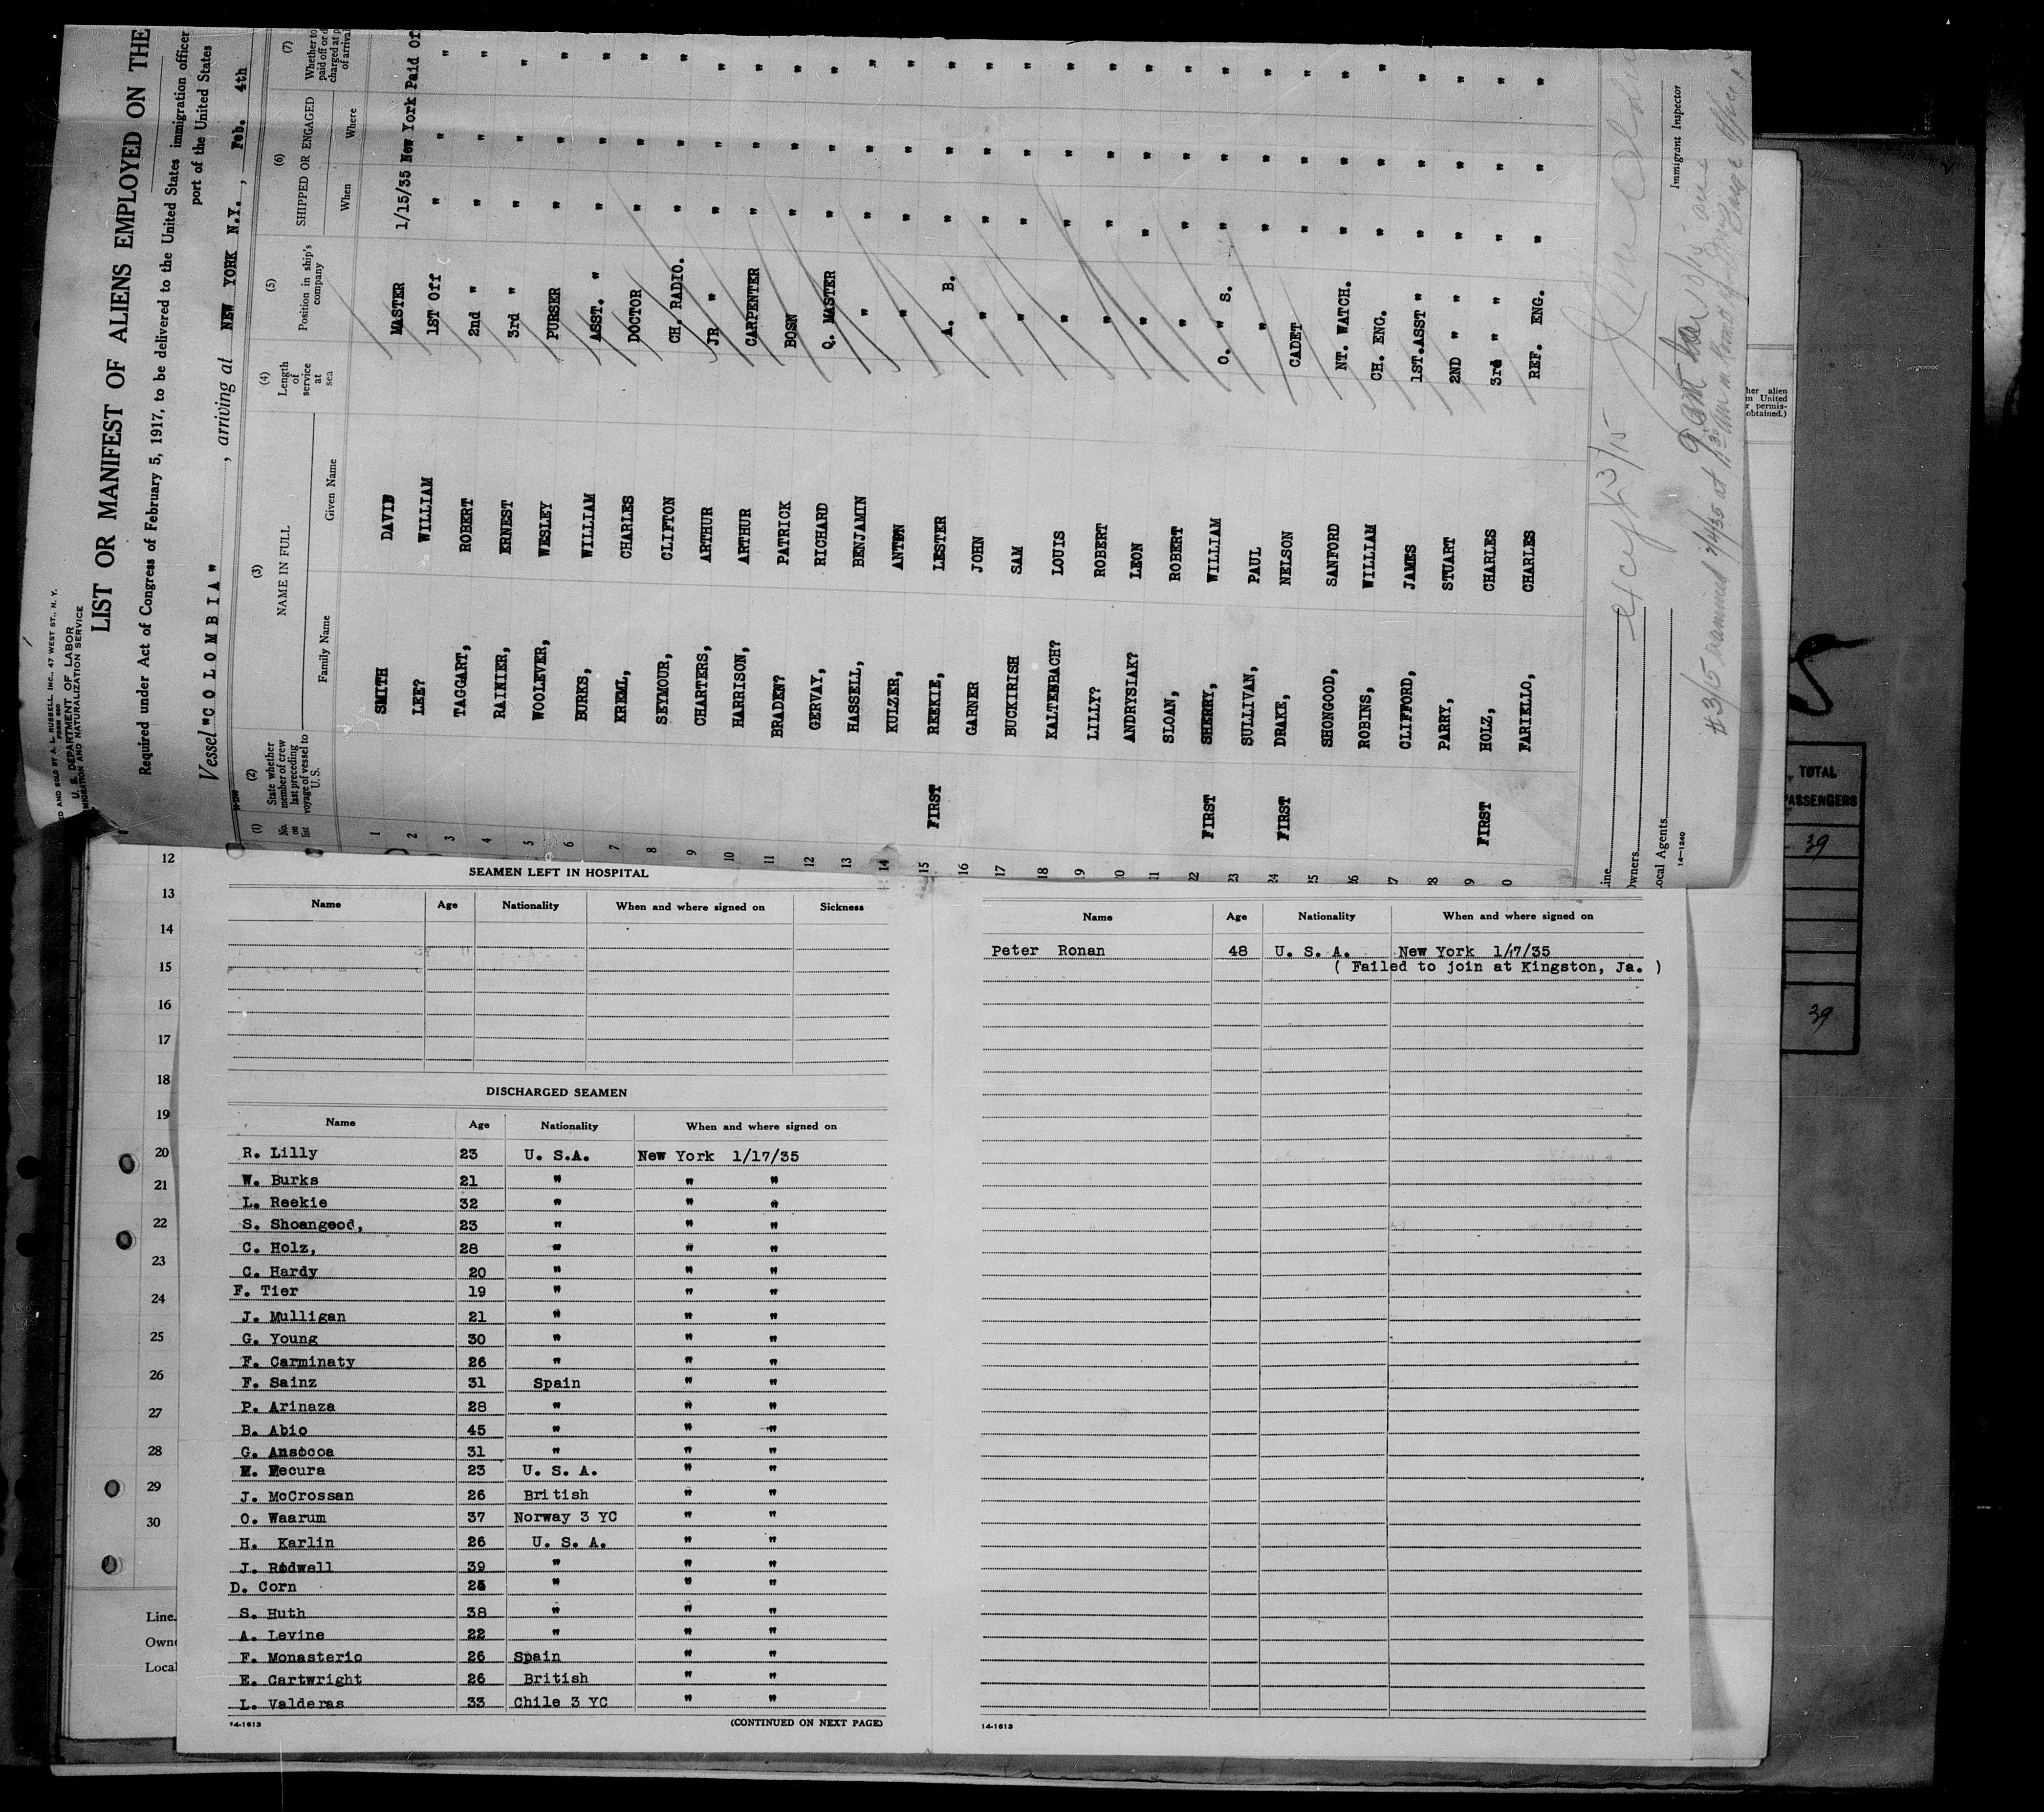 AND SOLD BY A. L. RUSSELL, INC., 47 WEST ST., N. Y.
FORM 680
U. S. DEPARTMENT OF LABOR
MIGRATION AND NATURALIZATION SERVICE
LIST OR MANIFEST OF ALIENS EMPLOYED ON THE
Required under Act of Congress of February 5, 1917, to be delivered to the United States immigration officer
port of the United States
Vessel "COLOMBIA" , arriving at NEW YORK N.Y. , Feb. 4th
(1) (2) (3) (4) (5) (6) (7)
No. on list
State whether member of crew last preceding voyage of vessel to U. S.
NAME IN FULL
Family Name Given Name
Length of service at sea
Position in ship's company
SHIPPED OR ENGAGED
When Where
Whether to
paid off or d
charged at p
of arrival
1 SMITH DAVID MASTER 1/15/35 New York Paid Of
2 LEE? WILLIAM 1ST Off " " "
3 TAGGART, ROBERT 2nd " " " "
4 RAINIER, ERNEST 3rd " " " "
5 WOOLEVER, WESLEY PURSER " " "
6 BURKS, WILLIAM ASST. " " " "
7 KREML, CHARLES DOCTOR " " "
8 SEYMOUR, CLIFTON CH, RADIO. " " "
9 CHARTERS, ARTHUR JR " " " "
10 HARRISON, ARTHUR CARPENTER " " "
11 BRADEN? PATRICK BOSN " " "
12 GERVAY, RICHARD Q. MASTER " " "
13 HASSELL, BENJAMIN " " " "
14 KULZER, ANTON " " " "
15 FIRST REEKIE, LESTER A. B. " " "
16 GARNER JOHN " " " "
17 BUCKIRISH SAM " " " "
18 KALTENBACH? LOUIS " " " "
19 LILLY? ROBERT " " " "
20 ANDRYSIAK? LEON " " " "
21 SLOAN, ROBERT " " " "
22 FIRST SHERRY, WILLIAM O. " S. " " "
23 SULLIVAN, PAUL " " " "
24 FIRST DRAKE, NELSON CADET " " "
25 SHONGOOD, SANFORD NT. WATCH. " " "
26 ROBINS, WILLIAM CH. ENG. " " "
27 CLIFFORD, JAMES 1ST.ASST " " " "
28 PARRY, STUART 2ND " " " "
29 FIRST HOLZ, CHARLES 3rd " " " "
30 FARIELLO, CHARLES REF. ENG. " " "
Line
Owners
Local Agents
Immigrant Inspector
14-1240
12
13
14
15
16
17
18
19
20
21
22
23
24
25
26
27
28
29
30
Line
Owne
Local
SEAMEN LEFT IN HOSPITAL
Name Age Nationality When and where signed on Sickness
DISCHARGED SEAMEN
Name Age Nationality When and where signed on
R. Lilly 23 U. S.A. New York 1/17/35
W. Burks 21 " " "
L. Reekie 32 " " "
S. Shoangood, 23 " " "
C. Holz, 28 " " "
C. Hardy 20 " " "
F. Tier 19 " " "
J. Mulligan 21 " " "
G. Young 30 " " "
F. Carminaty 26 " " "
F. Sainz 31 Spain " "
P. Arinaza 28 " " "
B. Abio 45 " " "
G. Ansocoa 31 " " "
Mecura 23 U. S. A. " "
J. McCrossan 26 British " "
O. Waarum 37 Norway 3 YC " "
H. Karlin 26 U. S. A. " "
J. Rodwell 39 " " "
D. Corn " " "
S. Huth 38 " " "
A. Levine 22 " " "
F. Monasterio 26 Spain " "
E. Cartwright 26 British " "
L. Valderas 33 Chile 3 YC " "
14-1613 (CONTINUED ON NEXT PAGE)
Name Age Nationality When and where signed on
Peter Ronan 48 U. S. A. New York 1/17/35
( Failed to join at Kingston, Ja. )
14-1613
her alien
m United
r permis-
obtained.)
TOTAL
PASSENGERS
39
39